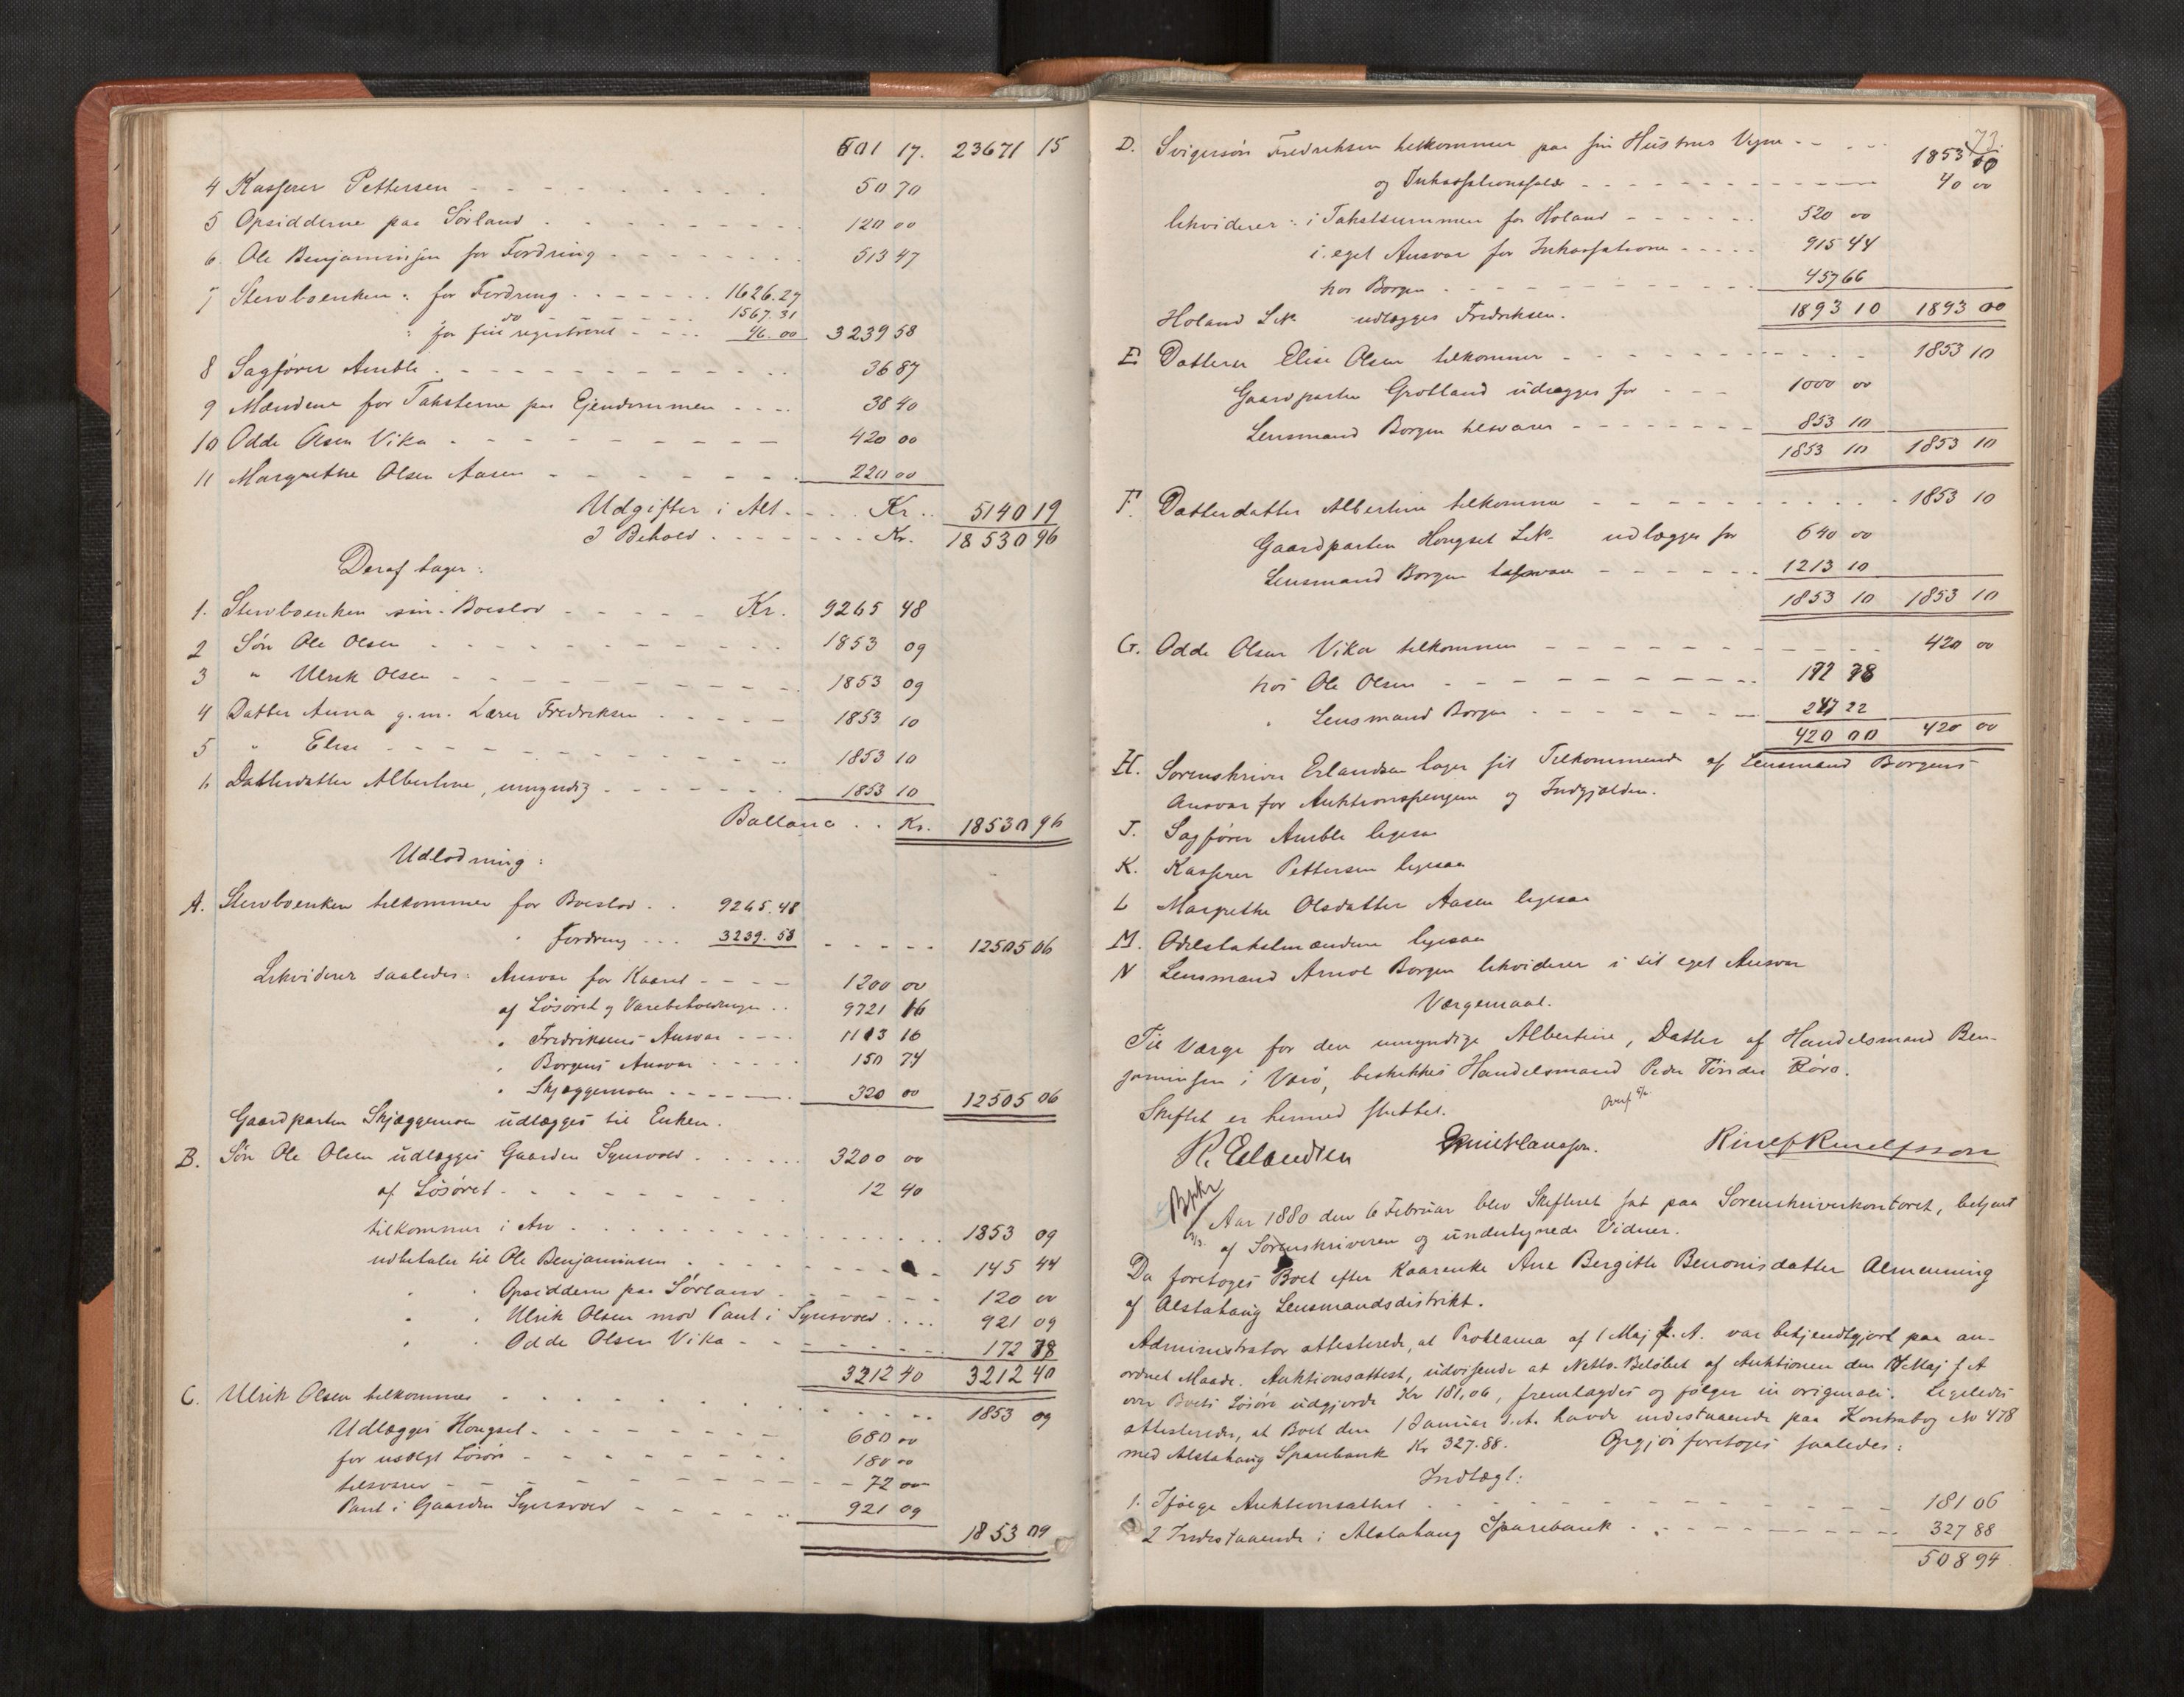 601 17. 23671 15
4 Kasserer Pettersen - - - 50 70
5 Opsidderne paa Sørland - - - 120 00
6. Ole Benjaminsen for Fordring - - - 513 47
7 Stervboenken: for Fordring - - - 1626.27
do 1567.31
: for fin registreret - - - 46.00 3239 58
8 Sagfører Amble - - - 36 87
9 Mændene for Taksterne paa Ejendommen - - - 38 40
10 Odde Olsen Vika - - - 420 00
11 Margrethe Olsen Aasen - - - 220 00
Udgifter i Alt - - - Kr. 5140 19
I Behold - - - Kr. 18530 96
Deraf tager:
1. Stervboenken sin Boeslod - - - Kr. 9265 48
2 Søn Ole Olsen - - - 1853 09
3 " Ulrik Olsen - - - 1853 09
4 Datter Anna g. m. Lærer Fredriksen - - - 1853 10
5 " Elise - - - 1853 10
6 Datterdatter Albertine, umyndig - - - 1853 10
Ballance . . Kr. 18530 96
Udlodning:
A. Stervboenken tilkommer for Boeslod . . 9265.48
" fordring - - - 3239.58 - - - 12505 06
Likviderer saaledes: Ansvar for Kaaret - - - 1200 00
af Løsøret og Varebeholdningen . . 9721 16
" Fredriksens Ansvar - - - 1113 16
" Borgens Ansvar - - - 150 74
" Skjæggemoen - - - 320 00 12505 06
Gaardparten Skjæggemoen udlægges til Enken.
B. Søn Ole Olsen udlægges Gaarden Synsvold - - - 3200 00
af Løsøret - - - 12 40
tilkommer i Arv - - - 1853 09
udbetaler til Ole Benjaminsen - - - 145 44
" " Opsidderne paa Sørland - - - 120 00
" " Ulrik Olsen mod Pant i Synsvold - - - 921 09
" " Odde Olsen Vika - - - 172 78
3212 40 3212 40
C. Ulrik Olsen tilkommes - - - 1853 09
Udlægges Hongset - - - 680 00
for usolgt Løsøre - - - 180 00
tilsvarer - - - 72 00
Pant i Gaarden Synsvold - - - 921 09
1853 09
73.
D. Svigersøn Fredriksen tilkommer paa sin Hustrus Vegne - - - 1853 10
og Inkassationssalær - - - 40 00
likviderer: i Takstsummen for Holand - - - 520 00
i eget Ansvar for Inkassationen - - - 915 44
hos Borgen - - - 457 66
Holand L.No udlægges Fredriksen. 1893 10 1893 00
E. Datteren Elise Olsen tilkommer - - - 1853 10
Gaardparten Grotland udlægges for - - - 1000 00
Lensmand Borgen tilsvarer - - - 853 10
1853 10 1853 10
F. Datterdatter Albertine tilkommer - - - 1853 10
Gaardparten Hongset L.No udlægges for 640 00
Lensmand Borgen tilsvarer - - - 1213 10
1853 10 1853 10
G. Odde Olsen Vika tilkommer - - - 420 00
hos Ole Olsen - - - 172 78
" Lensmand Borgen - - - 247 22
420 00 420 00
H. Sorenskriver Erlandsen tager sit Tilkommende af Lensmand Borgens
Ansvar for Auktionspengene og Indgjælden.
J. Sagfører Amble ligesaa
K. Kasserer Pettersen ligesaa
L Margrethe Olsdatter Aasen ligesaa
M. Odelstakstmændene ligesaa
N Lensmand Arnot Borgen likviderer i sit eget Ansvar
Værgemaal.
Til Værge for den umyndige Albertine, Datter af Handelsmand Ben-
jaminsen i Værø, beskikkes Handelsmand Peder Tønder Røro.
Skiftet er hermed sluttet.
R. Erlandsen Emil Hansson. Rinelf Rinelfsson
Aar 1880 den 6 Februar blev Skifteret sat paa Sorenskriverkontoret, betjent
af Sorenskriveren og undertegnede Vidner.
Da foretoges Boet efter Kaarenke Ane Bergitte Benonisdatter Almenning
af Alstahaug Lensmandsdistrikt.
Administrator attesterede, at Proklama af 1 Maj f. A. var bekjendtgjort paa an-
ordnet Maade. Auktionsattest, udvisende at Netto-Beløbet af Auktionen den 17 Maj f A
over Boets Løsøre udgjorde Kr 181,06, fremlagdes og følger in originali. Ligeledes
attesteredes, at Boet den 1 Januar d.A. havde indestaaende paa Kontrabog No 478
med Alstahaug Sparebank Kr 327.88. Opgjør foretoges saaledes:
Indtægt:
1. Ifølge Auktionsattest - - - 181 06
2 Indestaaende i Alstahaug Sparebank - - - 327 88
508 94